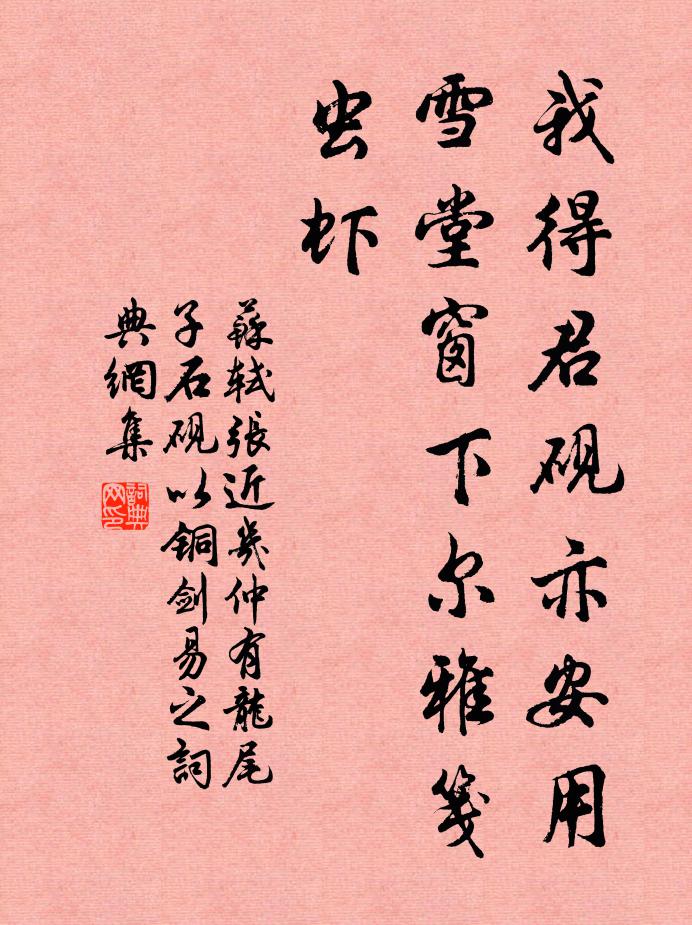 我得君砚亦安用
雪堂窗下尔雅笺
虫虾
蘇軾張近幾仲有龍尾
子石砚以铜剑易之詞
典網集
詞典
网印